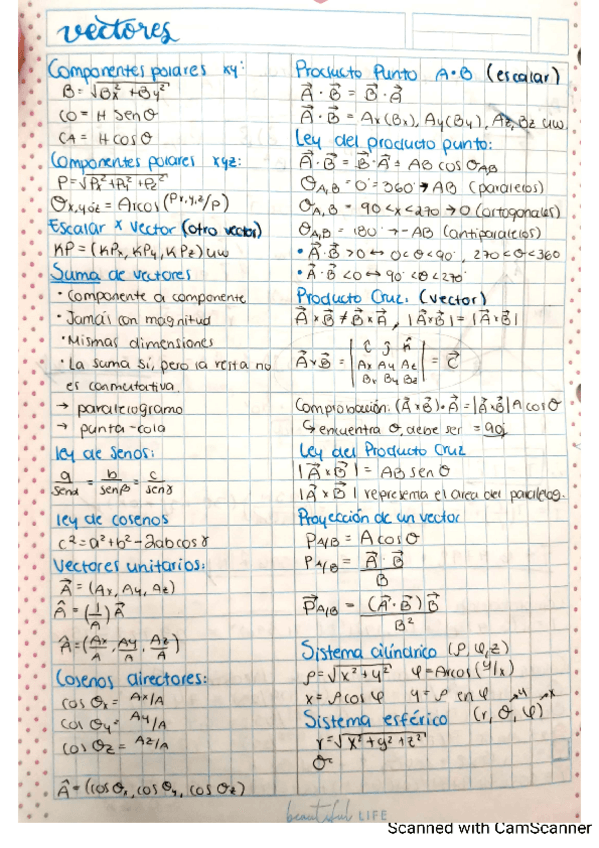 vectores
Componentes polares xy:
B = √Bx² + By²
CO = H senθ
CA = H cosθ
Componentes polares xyz:
P = √Px² + Py² + Pz²
θx,y o z = Arcos (Px,y,z/P)
Escalar x Vector (otro vector)
KP = (KPx, KPy, KPz) uw
Suma de vectores
· Componente a componente
· Jamás con magnitud
· Mismas dimensiones
· La suma sí, pero la resta no
es conmutativa.
→ paralelogramo
→ punta-cola
ley de senos:
a/senα = b/senβ = c/senγ
ley de cosenos
c² = a² + b² - 2ab cos γ
Vectores unitarios:
A⃗ = (Ax, Ay, Az)
Â = (1/A) A⃗
Â = (Ax/A, Ay/A, Az/A)
Cosenos directores:
cos θx = Ax/A
cos θy = Ay/A
cos θz = Az/A
Â = (cosθx, cos θy, cos θz)
Producto Punto A•B (escalar)
A⃗ · B⃗ = B⃗ · A⃗
A⃗ · B⃗ = Ax(Bx), Ay(By), Az, Bz uw.
Ley del producto punto:
A⃗ · B⃗ = B⃗ · A⃗ = AB cos θAB
θA,B = 0° = 360° → AB (paralelos)
θA,B = 90 < x < 270 → 0 (ortogonales)
θA,B = 180° → -AB (antiparalelos)
• A⃗ · B⃗ > 0 ↔ 0 < θ < 90°, 270 < θ < 360
• A⃗ · B⃗ < 0 ↔ 90° < θ < 270°
Producto Cruz. (vector)
A⃗ x B⃗ ≠ B⃗ x A⃗, |A⃗xB⃗| = |A⃗xB⃗|
A⃗xB⃗ = | î ĵ k̂ | = C⃗
Ax Ay Az
Bx By Bz
Comprobación: (A⃗xB⃗)•A⃗ = |A⃗xB⃗| A cosθ
↳ encuentra θ, debe ser = 90
Ley del Producto Cruz
|A⃗xB⃗| = AB senθ
|A⃗xB⃗| representa el area del paralelog.
Proyección de un vector
PA/B = A cosθ
PA/B = A⃗ · B⃗ / B
P⃗A/B = (A⃗ · B⃗) B⃗ / B²
Sistema cilíndrico (ρ, φ, z)
ρ = √x² + y² φ = Arcos (y/x)
x = ρ cos φ y = ρ en φ → y → x
Sistema esférico (r, θ, φ)
r = √x² + y² + z²
θ=
beautiful LIFE
Scanned with CamScanner